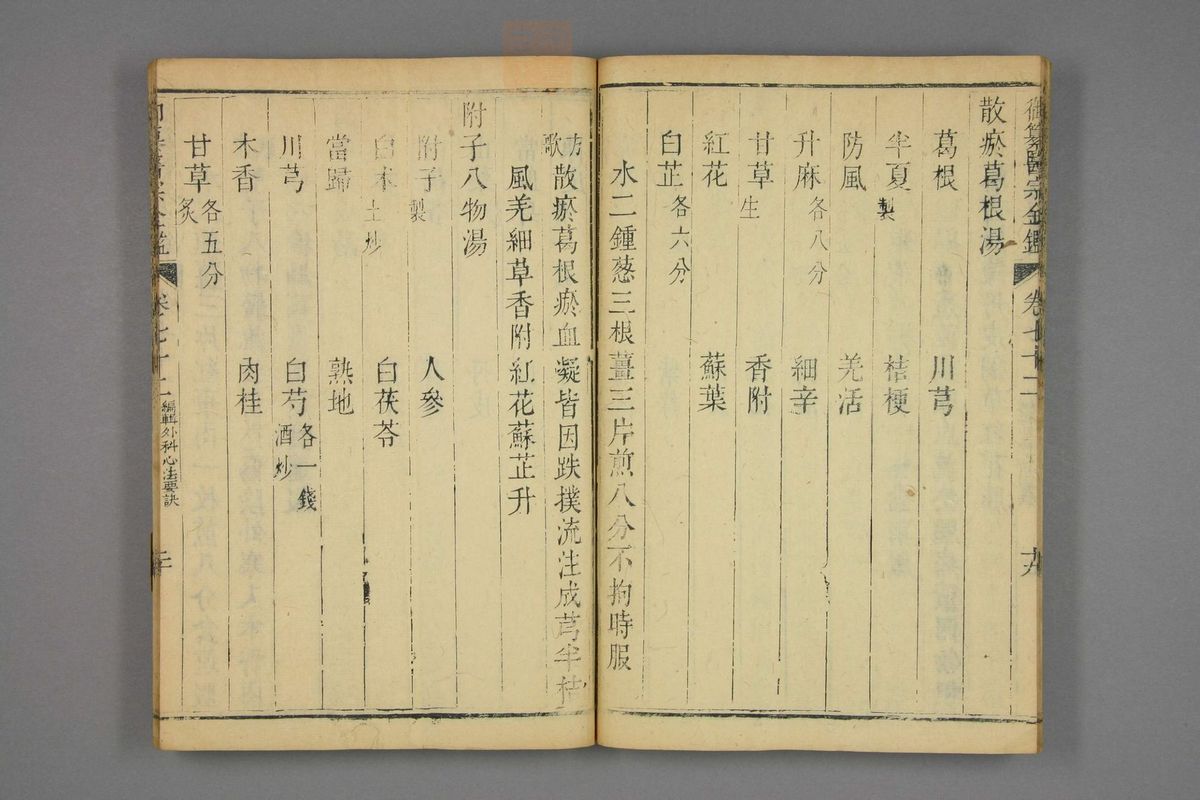 御纂醫宗金鑑 卷七十二
散瘀葛根湯
葛根 川芎
半夏製 桔梗
防風 羌活
升麻各八分 細辛
甘草生 香附
紅花 蘇葉
白芷各六分
水二鍾葱三根薑三片煎八分不拘時服
方歌散瘀葛根瘀血凝皆因跌撲流注成芎半桔
風羌細草香附紅花蘇芷升
附子八物湯
附子製 人參
白朮土炒 白茯苓
當歸 熟地
川芎 白芍酒炒各一錢
木香 肉桂
甘草炙各五分
卷七十二 編輯外科心法要訣